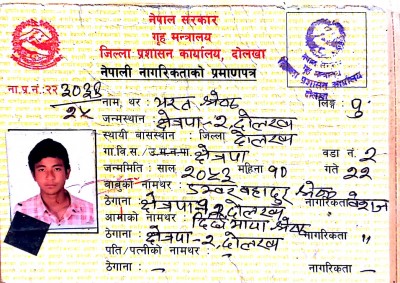 नेपाल सरकार
गृह मन्त्रालय
जिल्ला प्रशासन कार्यालय, दोलखा
नेपाली नागरिकताको प्रमाणपत्र
ना.प्र.नं.:२२३०३४
२४
नाम, थर : भरत श्रेष्ठ लिङ्ग : पु
जन्मस्थान : क्षेत्रपा-२, दोलखा
स्थायी बासस्थान : जिल्ला दोलखा
गा.वि.स./उ.म.न.पा. क्षेत्रपा वडा नं. २
जन्ममिति : साल २०५३ महिना १० गते २२
बाबुको नामथर : डम्बर बहादुर श्रेष्ठ
ठेगाना : क्षेत्रपा-२, दोलखा नागरिकता वंशज
आमाको नामथर : माया श्रेष्ठ
ठेगाना : क्षेत्रपा-२, दोलखा नागरिकता "
पति/पत्नीको नामथर : -
ठेगाना : - नागरिकता -
नेपाल सरकार
गृह मन्त्रालय
जिल्ला प्रशासन कार्यालय
दोलखा